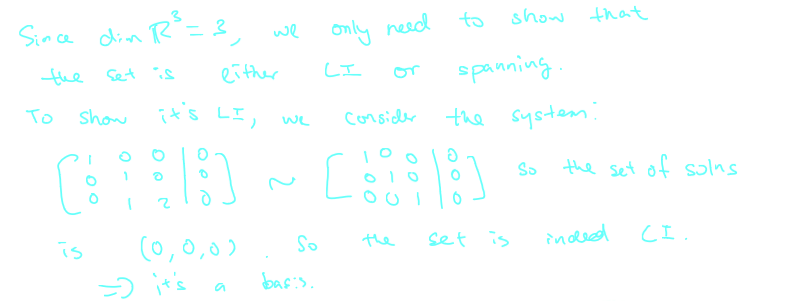 Since dim R^3 = 3, we only need to show that
the set is either LI or spanning.
To show it's LI, we consider the system:
[1 0 0 | 0] [1 0 0 | 0]
[0 1 0 | 0] ~ [0 1 0 | 0] so the set of solns
[0 1 2 | 0] [0 0 1 | 0]
is (0,0,0). So the set is indeed LI.
=> it's a basis.